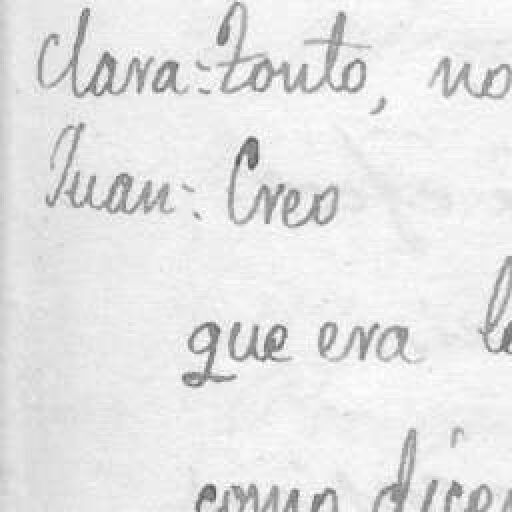 Clara:-Zonto, no
Juan:- Creo
que era
como dicen